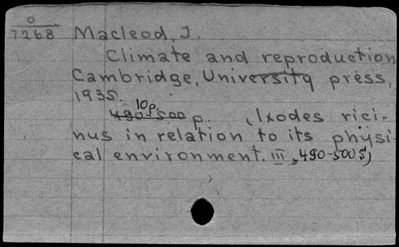 0
7268
Macleod, J.
Climate and reproduction
Cambridge, University press,
1935.
10p.
490-500 p. (Ixodes rici-
nus in relation to its physi-
cal environment. III, 490-500 s)